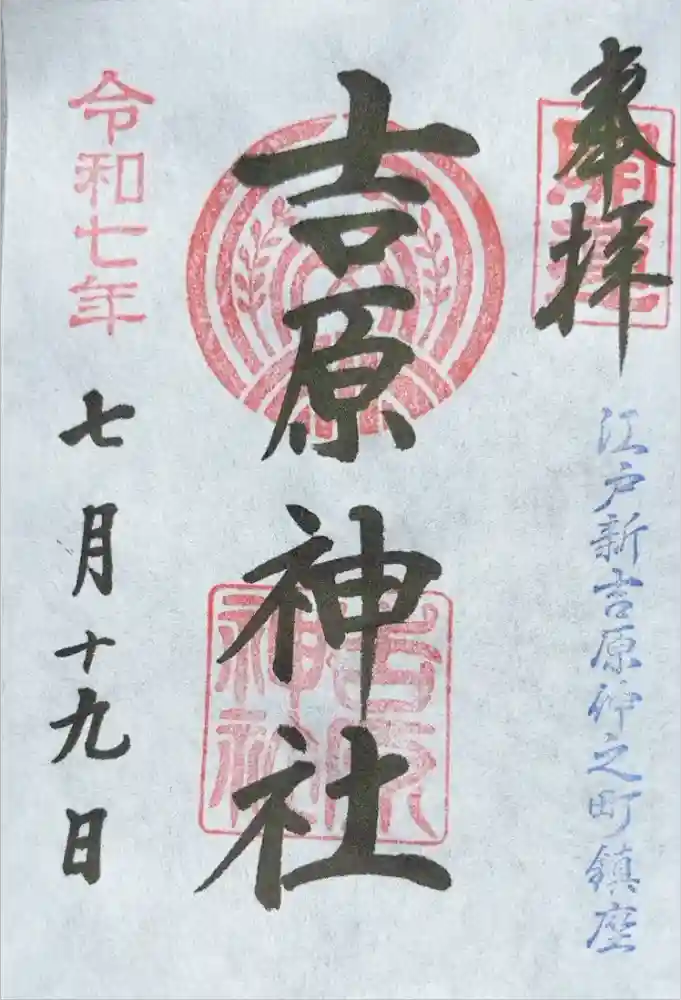 奉拝
開運
江戸新吉原仲之町鎮座
吉原神社
吉原
神社
令和七年
七月十九日